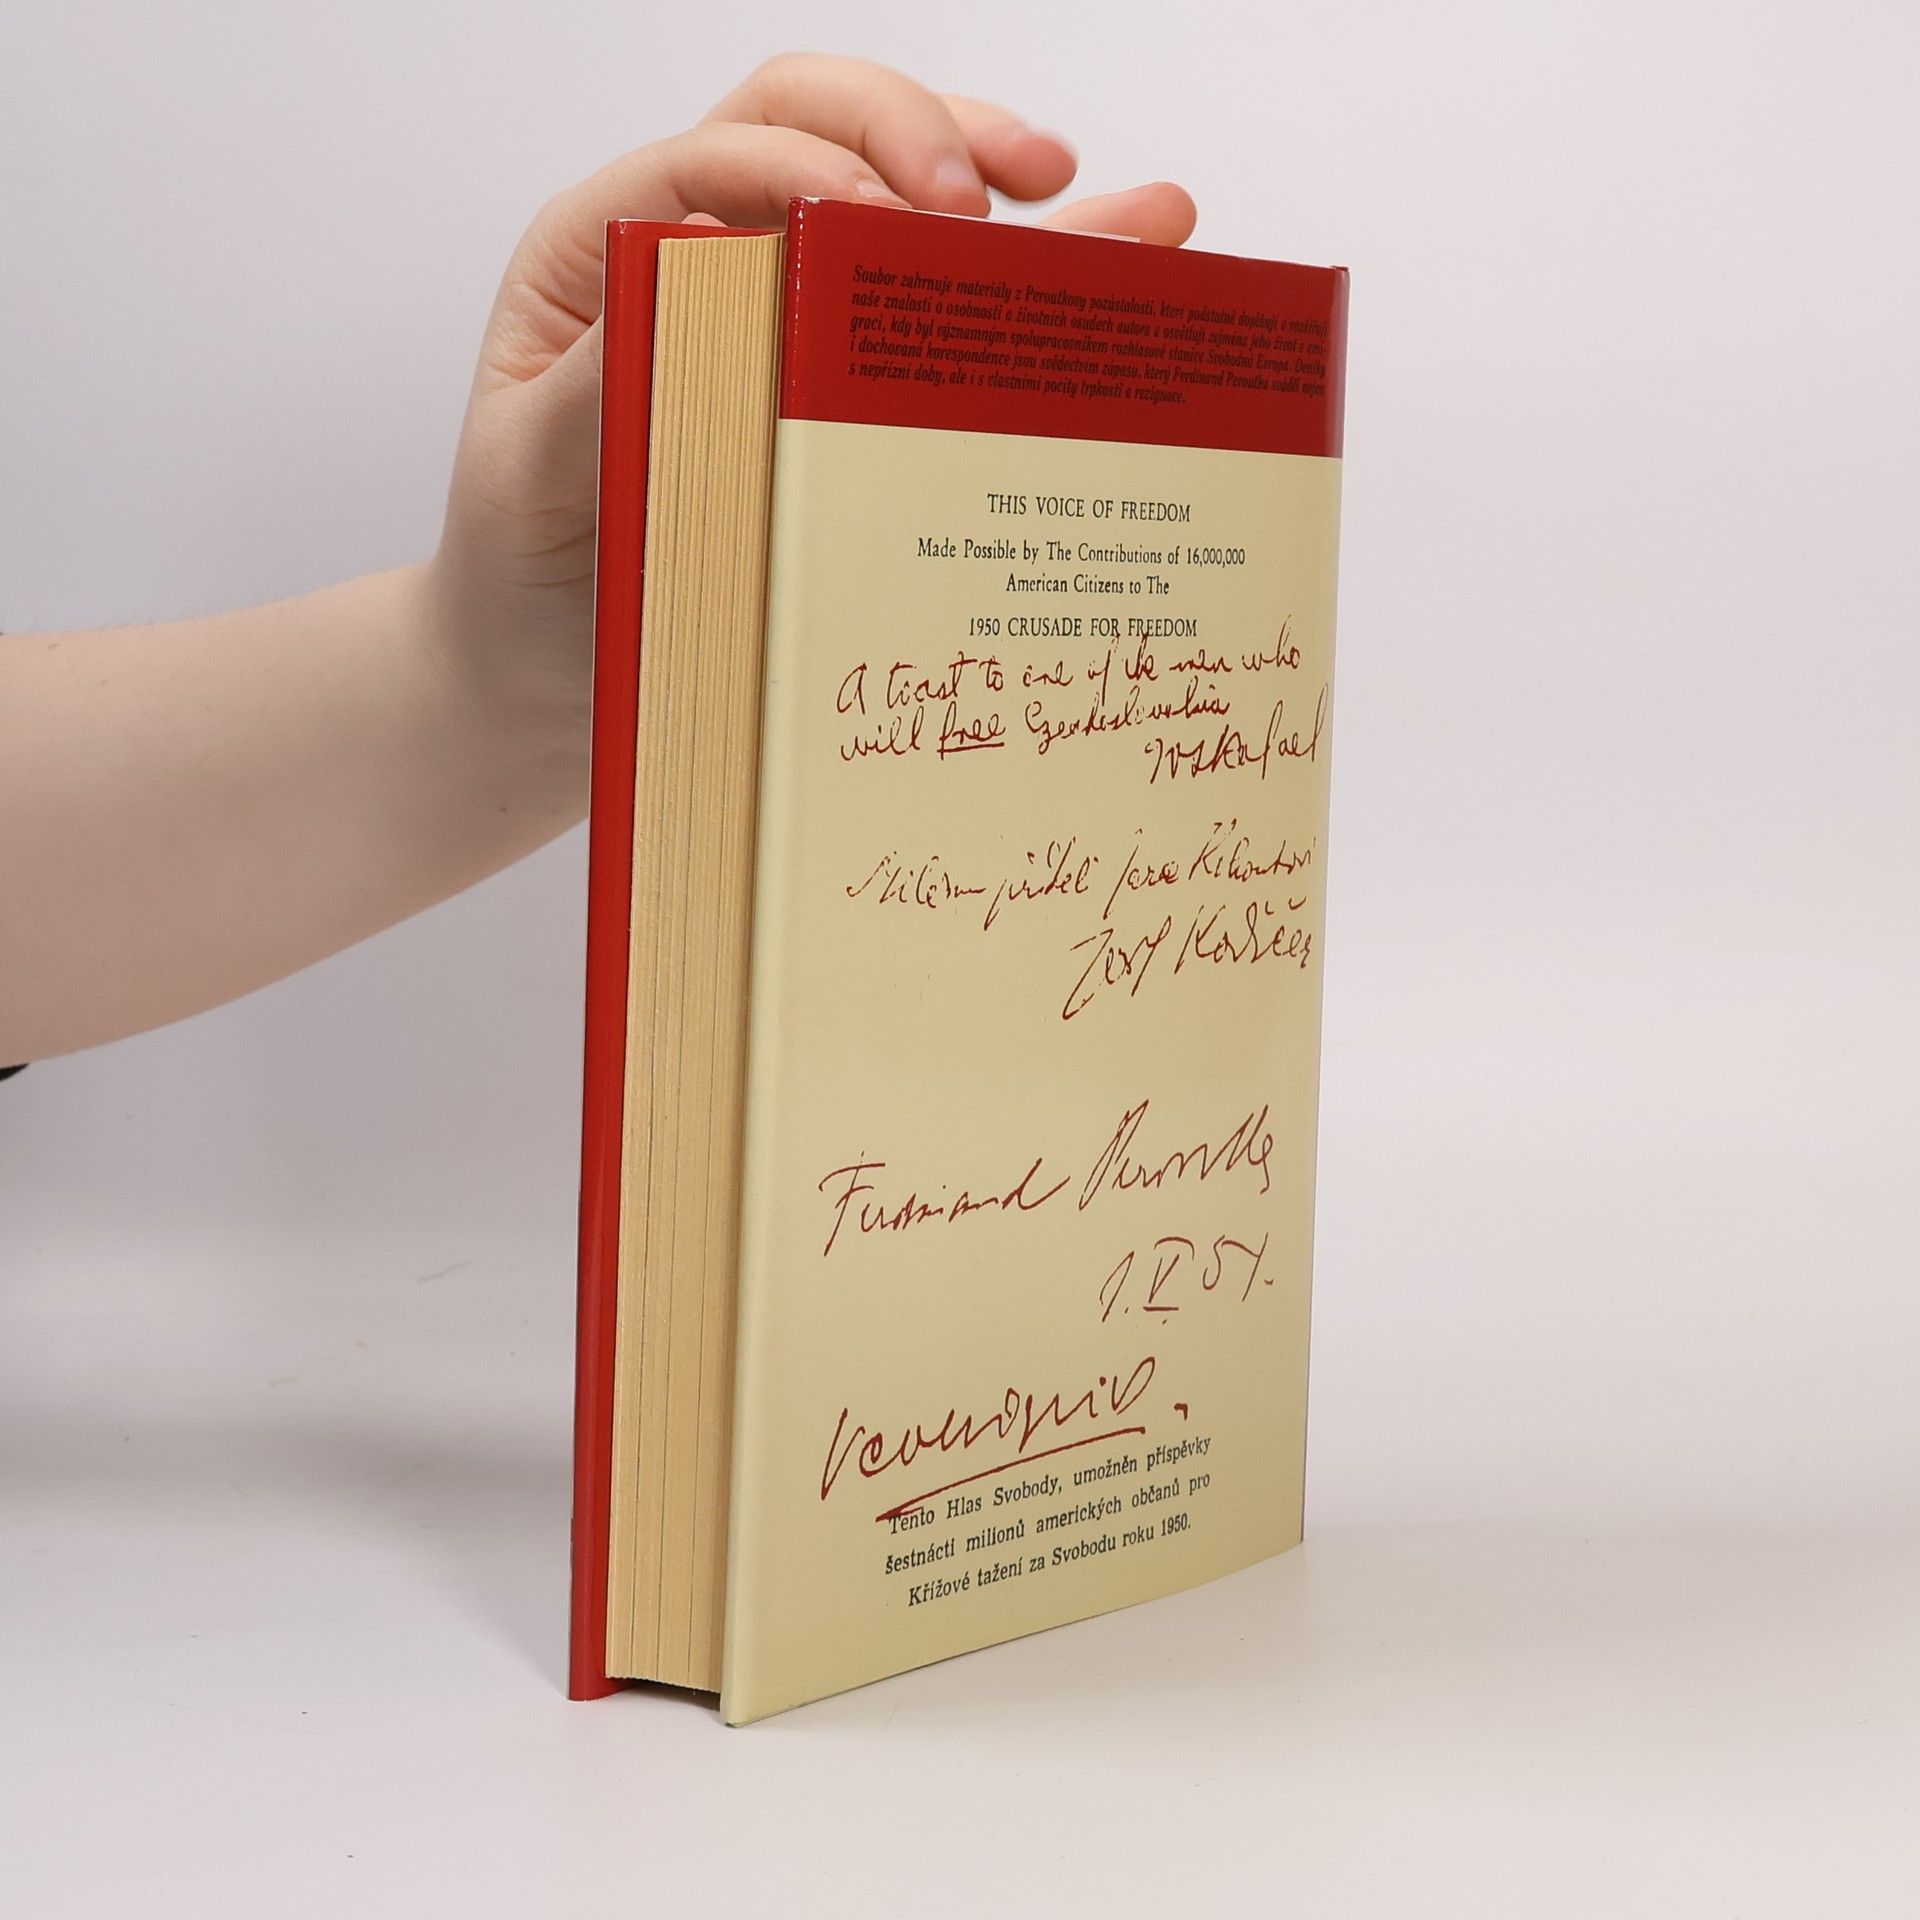 Soubor zahrnuje materiály z Peroutkovy pozůstalosti, které podstatně doplňují a rozšiřují
naše znalosti o osobnosti a životních osudech autora a osvětlují zejména jeho život v emi-
graci, kdy byl významným spolupracovníkem rozhlasové stanice Svobodná Evropa. Deníky
i dochovaná korespondence jsou svědectvím zápasu, který Ferdinand Peroutka sváděl nejen
s nepřízní doby, ale i s vlastními pocity trpkosti a rezignace.
THIS VOICE OF FREEDOM
Made Possible by The Contributions of 16,000,000
American Citizens to The
1950 CRUSADE FOR FREEDOM
A toast to one of the men who
will free Czechoslovakia
Ferdinand Peroutka
1. V 51.
Tento Hlas Svobody, umožněn příspěvky
šestnácti milionů amerických občanů pro
Křížové tažení za Svobodu roku 1950.